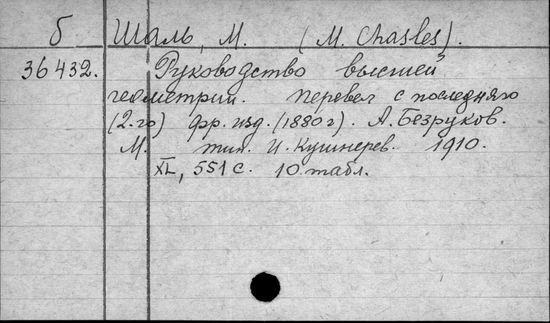 Б Шаль, М. (M. Chasles).
36432. Руководство высшей
геометрии. Перевел с последняго
(2.го) фр. изд. (1880 г). А. Безруков.
М. тип. И. Кушнерев. 1910.
XL, 551 с. 10 табл.